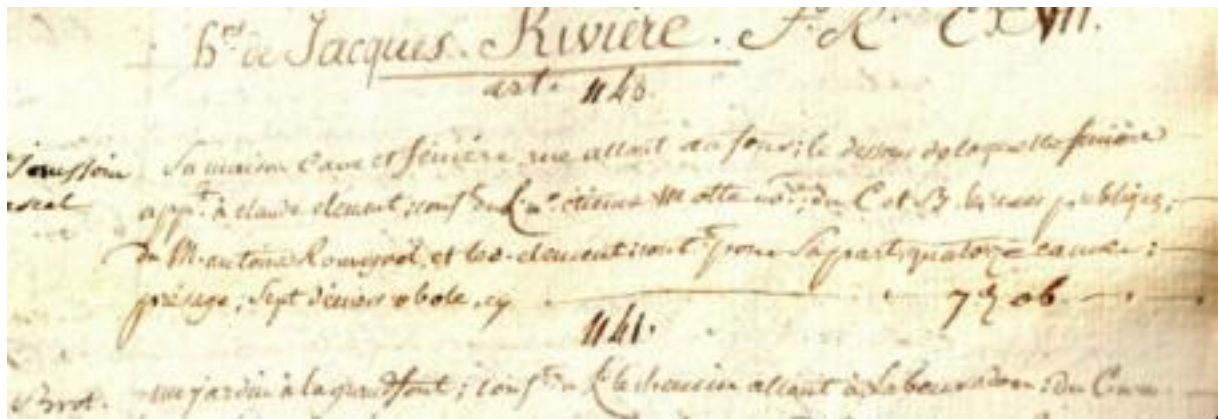 h.rs de Jacques. Rivière. f.o R.o CXVII.
art. 1140.
Sa maison Cave et feniére, rue allant au four; le dessous de laquelle feniére
app.t à claude clement; conf.te du L. m.e etienne Motte no.re; du C. et B. les rues publiques;
du M. antoine Rouvignol, et led. clement; cont.t pour Sa part, quatorze cannes:
présage; Sept deniers obole, cy 7 d ob.
1141.
un jardin à la grandfont; conf.te du L. le chemin allant à du C.